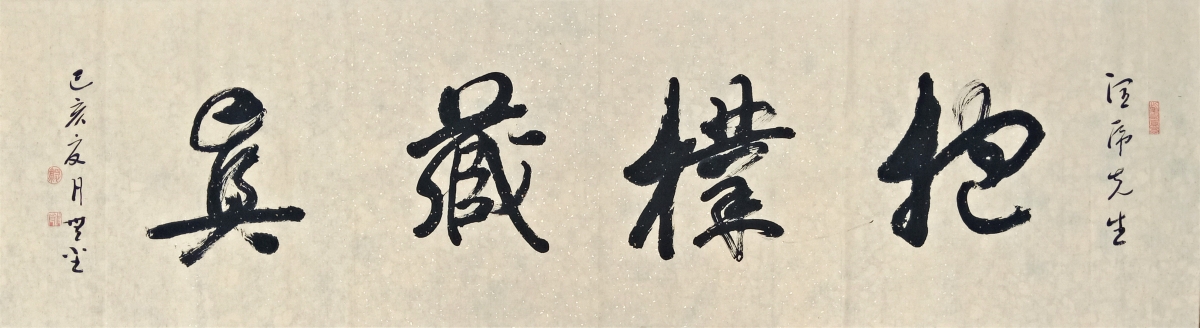 抱樸藏真
先生
己亥夏月